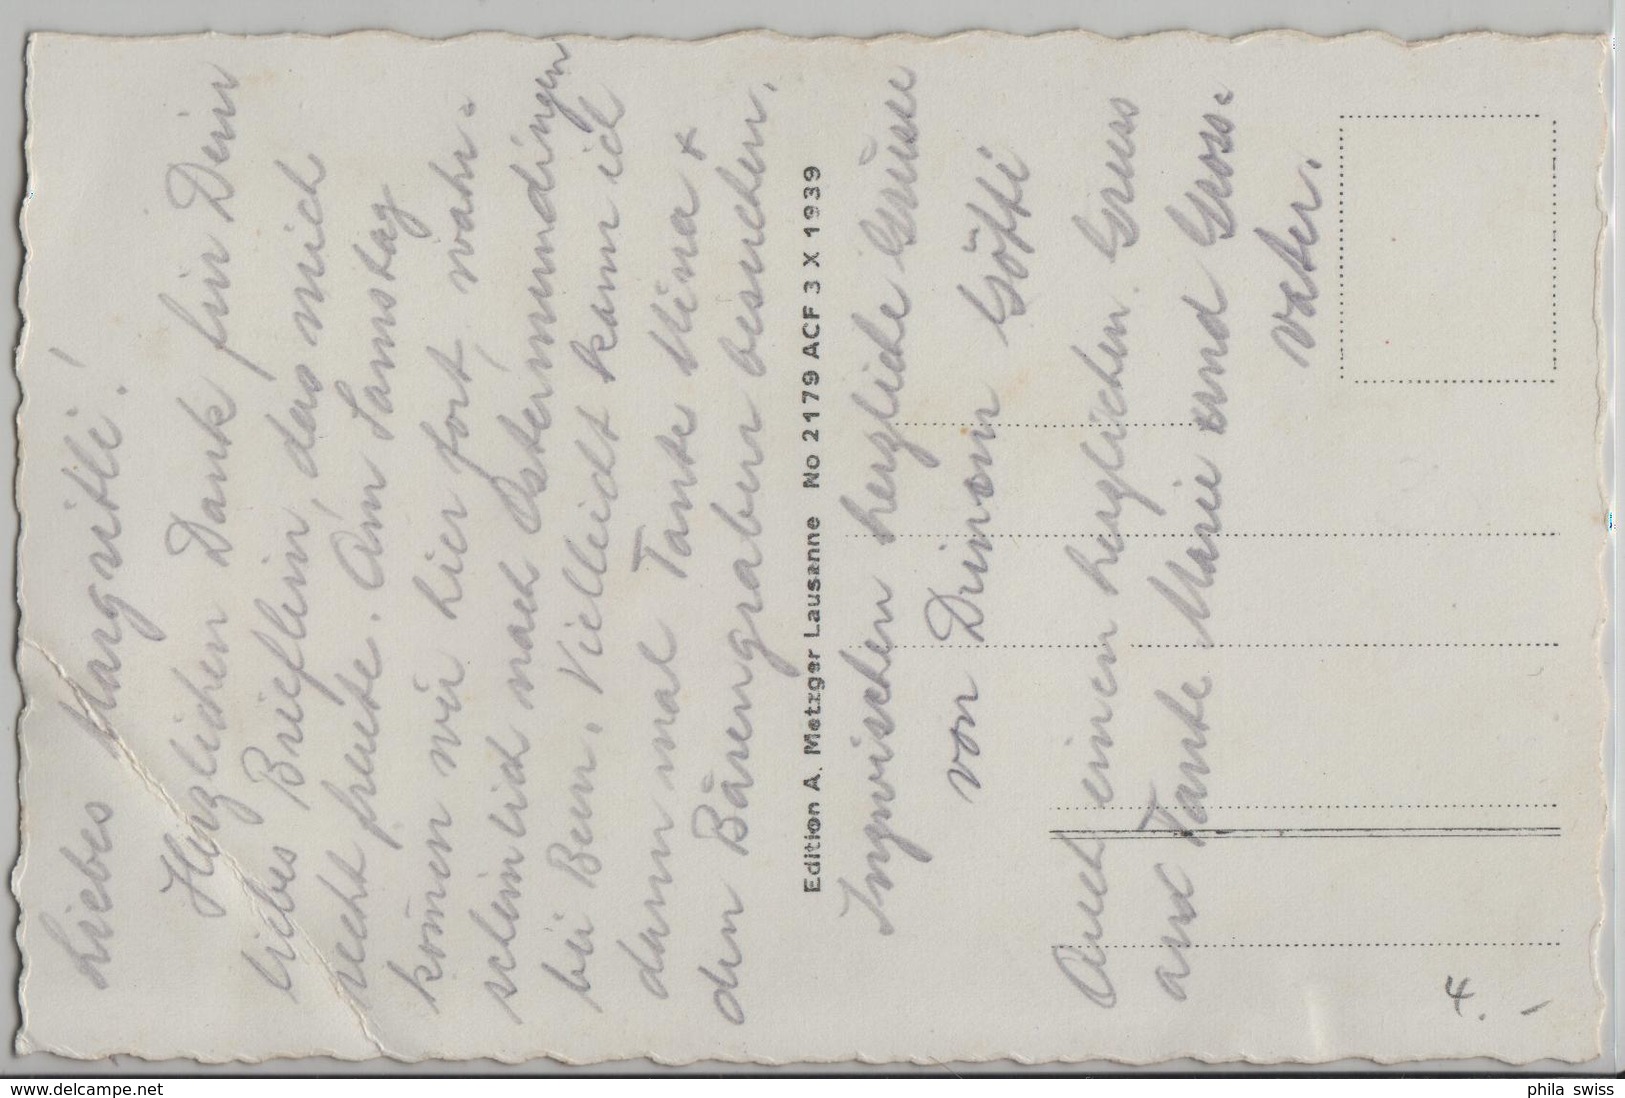 Liebes Margritli!
Herzlichen Dank für Dein
liebes Brieflein, das mich
recht freute. Am Samstag
könen wir hier fort, wahr-
scheinlich nach Ostermundingen
bei Bern. Vielleicht kann ich
dann mal Tante Mina +
den Bärengraben besuchen.
Edition A. Metzger Lausanne No 2179 ACF 3 X 1939
Inzwischen herzliche Grüsse
von Deinem Götti
Auch einen herzlichen Gruss
an Tante Marie und Gross-
vater.
4.-
www.delcampe.net
phila_swiss